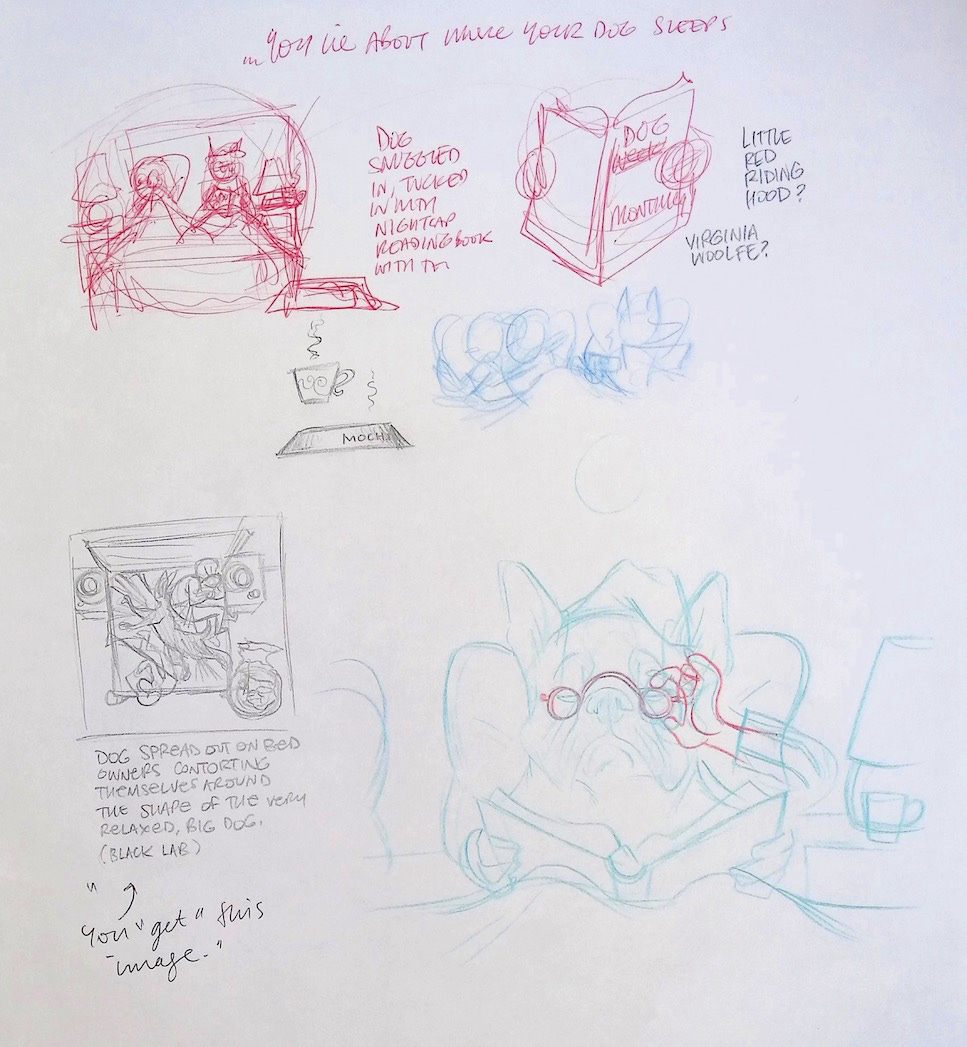 ... YOU LIE ABOUT WHERE YOUR DOG SLEEPS
DOG
SNUGGLED
IN, TUCKED
IN WITH
NIGHTCAP
READING BOOK
WITH
DOG
WEEKLY
MONTHLY
LITTLE
RED
RIDING
HOOD?
VIRGINIA
WOOLFE?
MOCHI
DOG SPREAD OUT ON BED
OWNERS CONTORTING
THEMSELVES AROUND
THE SHAPE OF THE VERY
RELAXED, BIG DOG.
(BLACK LAB)
"
You "get" this
"image."